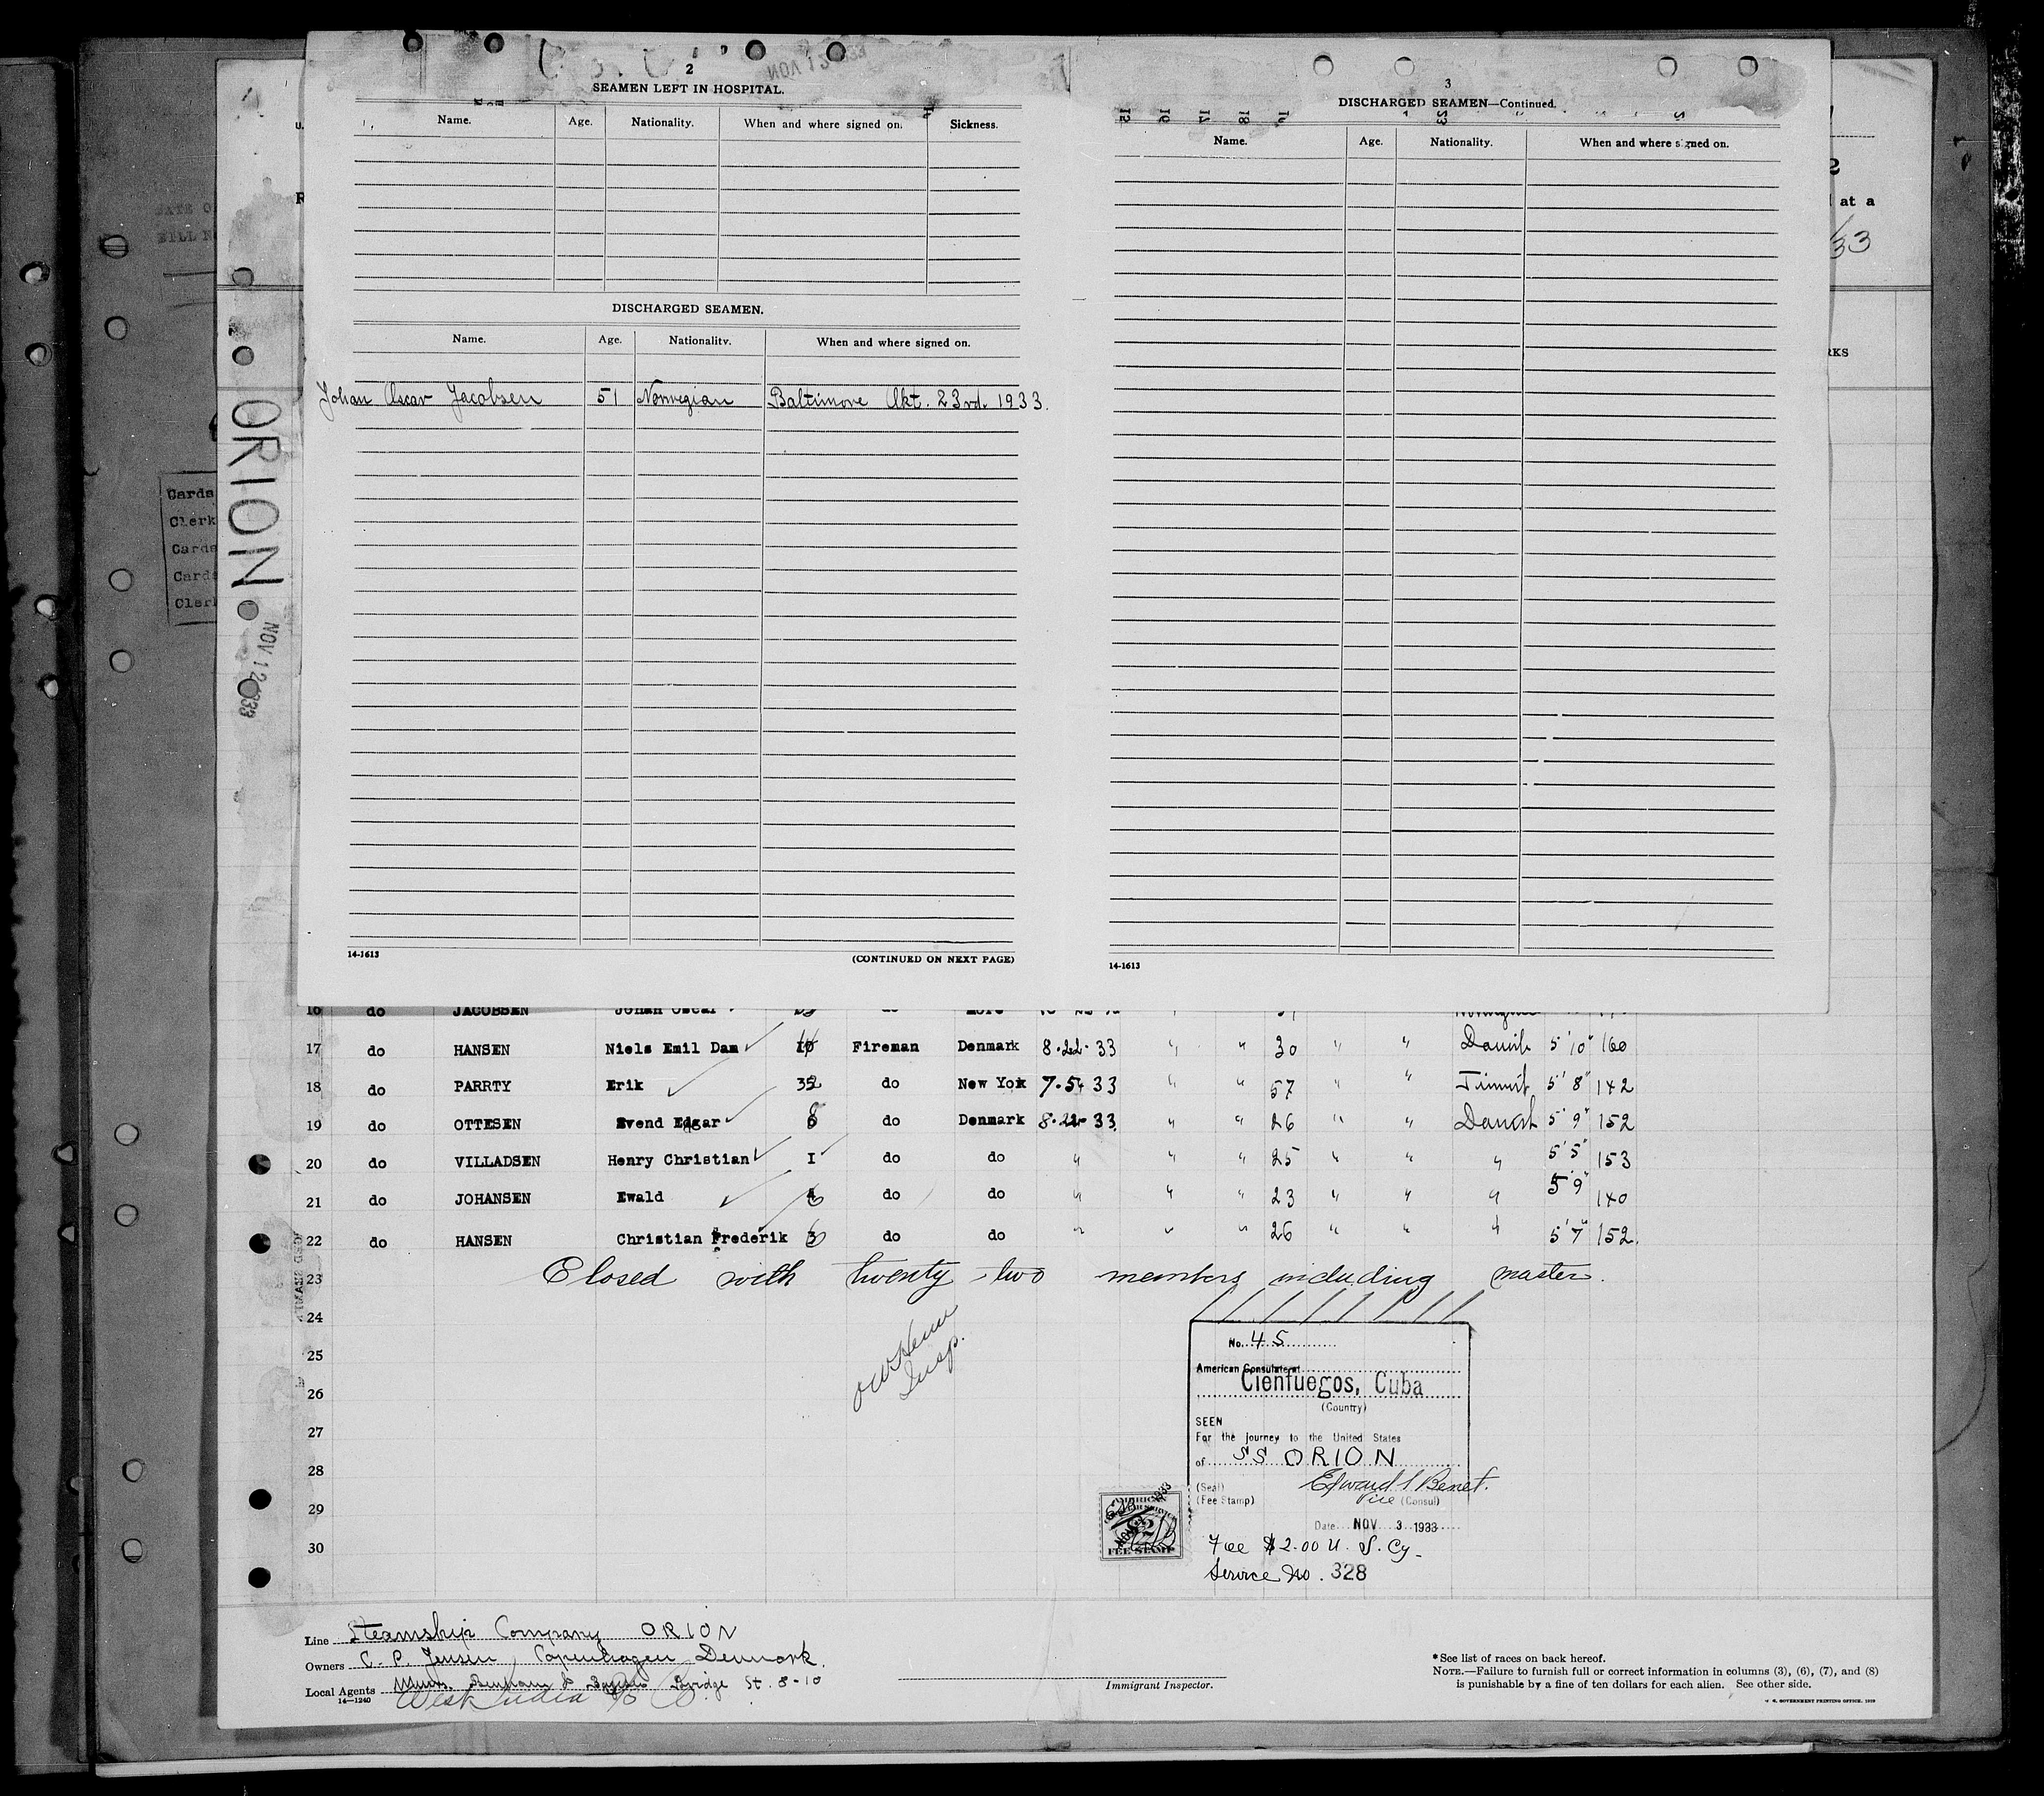 2
SEAMEN LEFT IN HOSPITAL.
Name. Age. Nationality. When and where signed on. Sickness.
DISCHARGED SEAMEN.
Name. Age. Nationality. When and where signed on.
Johan Oscar Jacobsen 51 Norwegian Baltimore Okt. 23rd. 1933.
14-1613
(CONTINUED ON NEXT PAGE)
NOV 12
3
DISCHARGED SEAMEN—Continued.
Name. Age. Nationality. When and where signed on.
14-1613
at a
33
RKS
Cards
Clerk
Cards
Cards
Clerk
ORION
NOV 12 1933
16 do JACOBSEN Johan Oscar
17 do HANSEN Niels Emil Dam Fireman Denmark 8-22-33 " " 30 " " Danish 5'10" 160
18 do PARRTY Erik do New Yok 7-5-33 " " 57 " " 5'8" 142
19 do OTTESEN Svend Edgar 8 do Denmark 8-22-33 " " 26 " " Danish 5'9" 152
20 do VILLADSEN Henry Christian I do do " " " 25 " " " 5'5" 153
21 do JOHANSEN Ewald do do " " " 23 " " " 5'9" 140
22 do HANSEN Christian Frederik do do " " " 26 " " " 5'7" 152.
23 Closed with twenty-two members including master.
24
25
26
27
28
29
30
Insp.
No. 45
American Consulate at
Cienfuegos, Cuba
(Country)
SEEN
For the journey to the United States
of SS ORION
(Seal)
Edward S Benet.
(Fee Stamp)
Vice (Consul)
Date NOV 3 1933
Fee $2.00 U. S. Cy.
Service No. 328
AMERICAN
FEE STAMP
Line Steamship Company ORION
Owners C. P. Jensen, Copenhagen Denmark.
Local Agents Bridge St. 8-10
West India
14—1240
Immigrant Inspector.
*See list of races on back hereof.
NOTE.—Failure to furnish full or correct information in columns (3), (6), (7), and (8)
is punishable by a fine of ten dollars for each alien. See other side.
U. S. GOVERNMENT PRINTING OFFICE